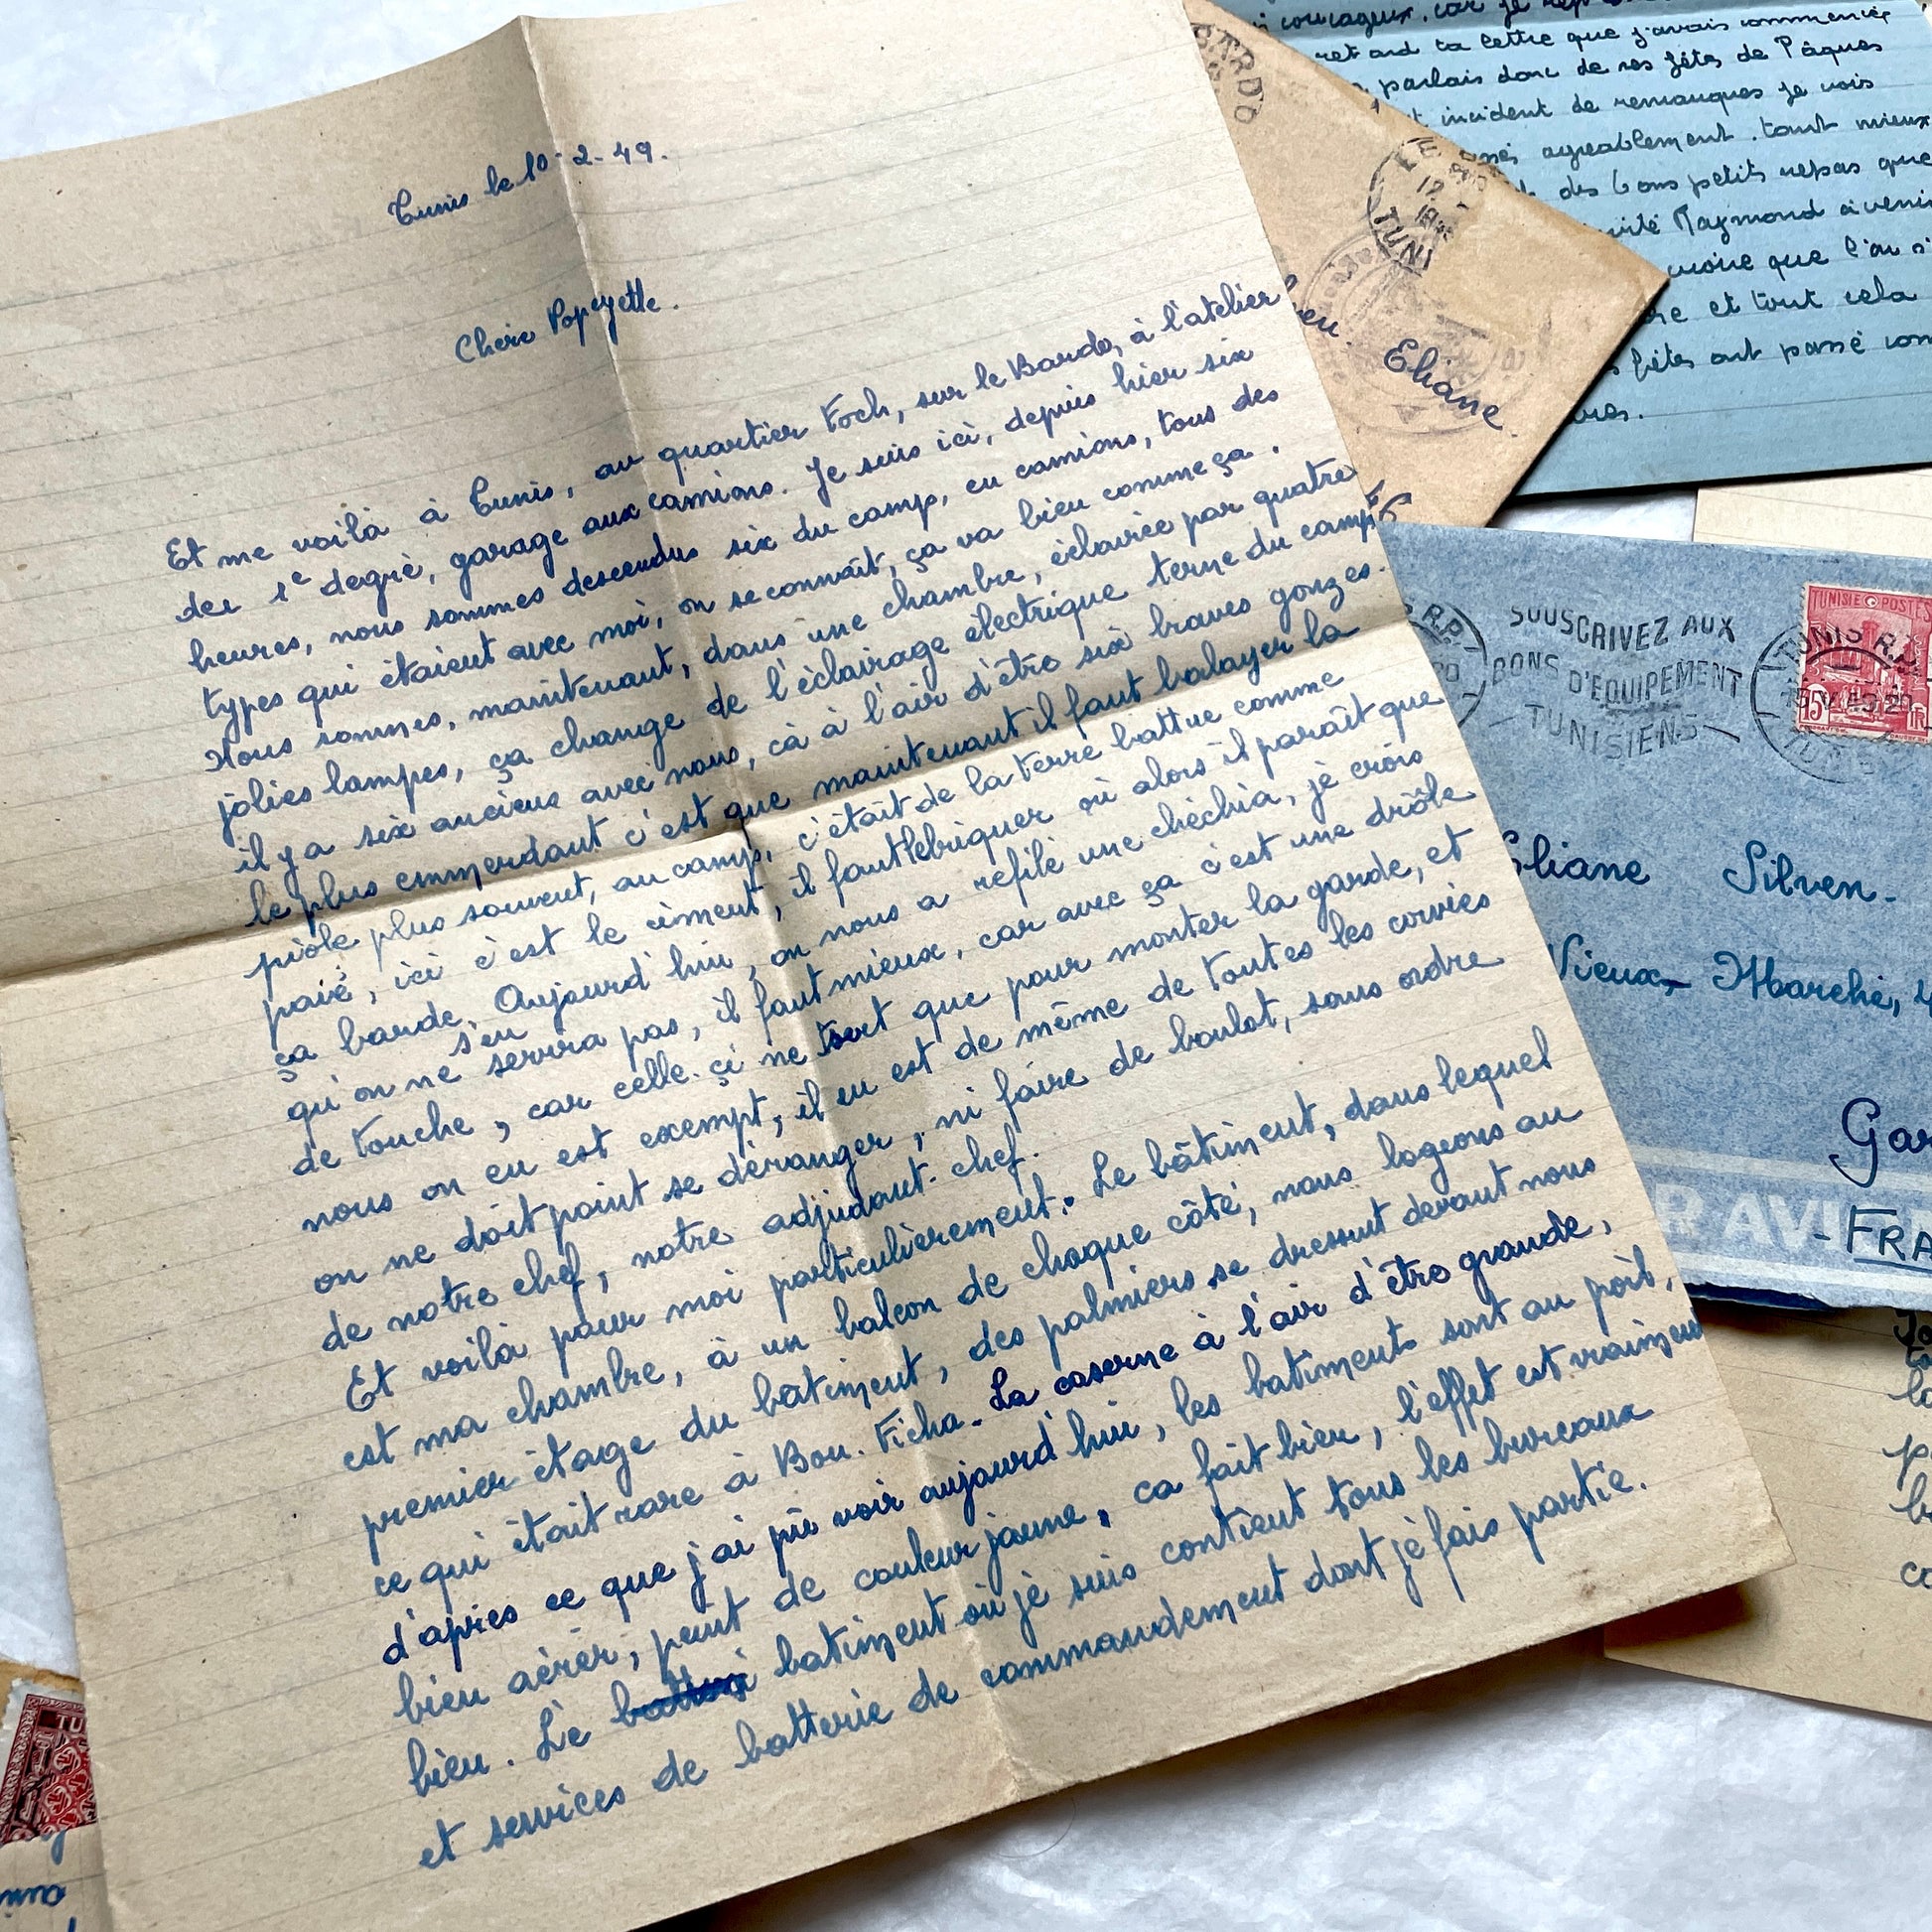 Tunis le 10-2-49.
Chère Popeyette.
Et me voilà à Tunis, au quartier Foch, sur le Bardo, à l'atelier
der 1e degré, garage aux camions. Je suis ici, depuis hier six
heures, nous sommes descendus six du camp, en camions, tous des
types qui étaient avec moi, on se connaît, ça va bien comme ça.
Nous sommes, maintenant, dans une chambre, éclairée par quatre
jolies lampes, ça change de l'éclairage électrique terne du camp
il y a six anciens avec nous, çà à l'air d'être six braves gonzes.
le plus emmerdant c'est que maintenant il faut balayer la
piole plus souvent, au camp, c'était de la terre battue comme
pavé, ici c'est le ciment, il faut le briquer où alors il paraît que
ça barde. Aujourd'hui, on nous a refilé une chéchia, je crois
qu'on ne s'en servira pas, il faut mieux, car avec ça c'est une drôle
de touche, car celle-ci ne sert que pour monter la garde, et
nous on en est exempt, il en est de même de toutes les corvées
on ne doit point se déranger, ni faire de boulot, sans ordre
de notre chef, notre adjudant-chef.
Et voilà pour moi particulièrement. Le bâtiment, dans lequel
est ma chambre, à un balcon de chaque côté, nous logeons au
premier étage du bâtiment, des palmiers se dressent devant nous
ce qui était rare à Bou-Ficha. La caserne à l'air d'être grande,
d'après ce que j'ai pû voir aujourd'hui, les batiments sont au poil,
bien aérér, peint de couleur jaune, ca fait bien, l'effet est vraiment
bien. Le batiment où je suis contient tous les bureaux
et services de batterie de commandement dont je fais partie.
BARDO
LE
TUNI
Eliane.
courageux, car je
retard ta lettre que j'avais commencée
parlais donc de nos fêtes de Pâques
incident de remarques je vois
agréablement. tant mieux
des bons petits repas que
Raymond à venir
que l'on
et tout cela
fêtes ont passé
R.P.
SOUSCRIVEZ AUX
BONS D'EQUIPEMENT
TUNISIENS
TUNIS R.P.
TUNISIE POSTES
15
Eliane Silven.
Vieux-Marché,
Gar
R AVI
-FRA
TU